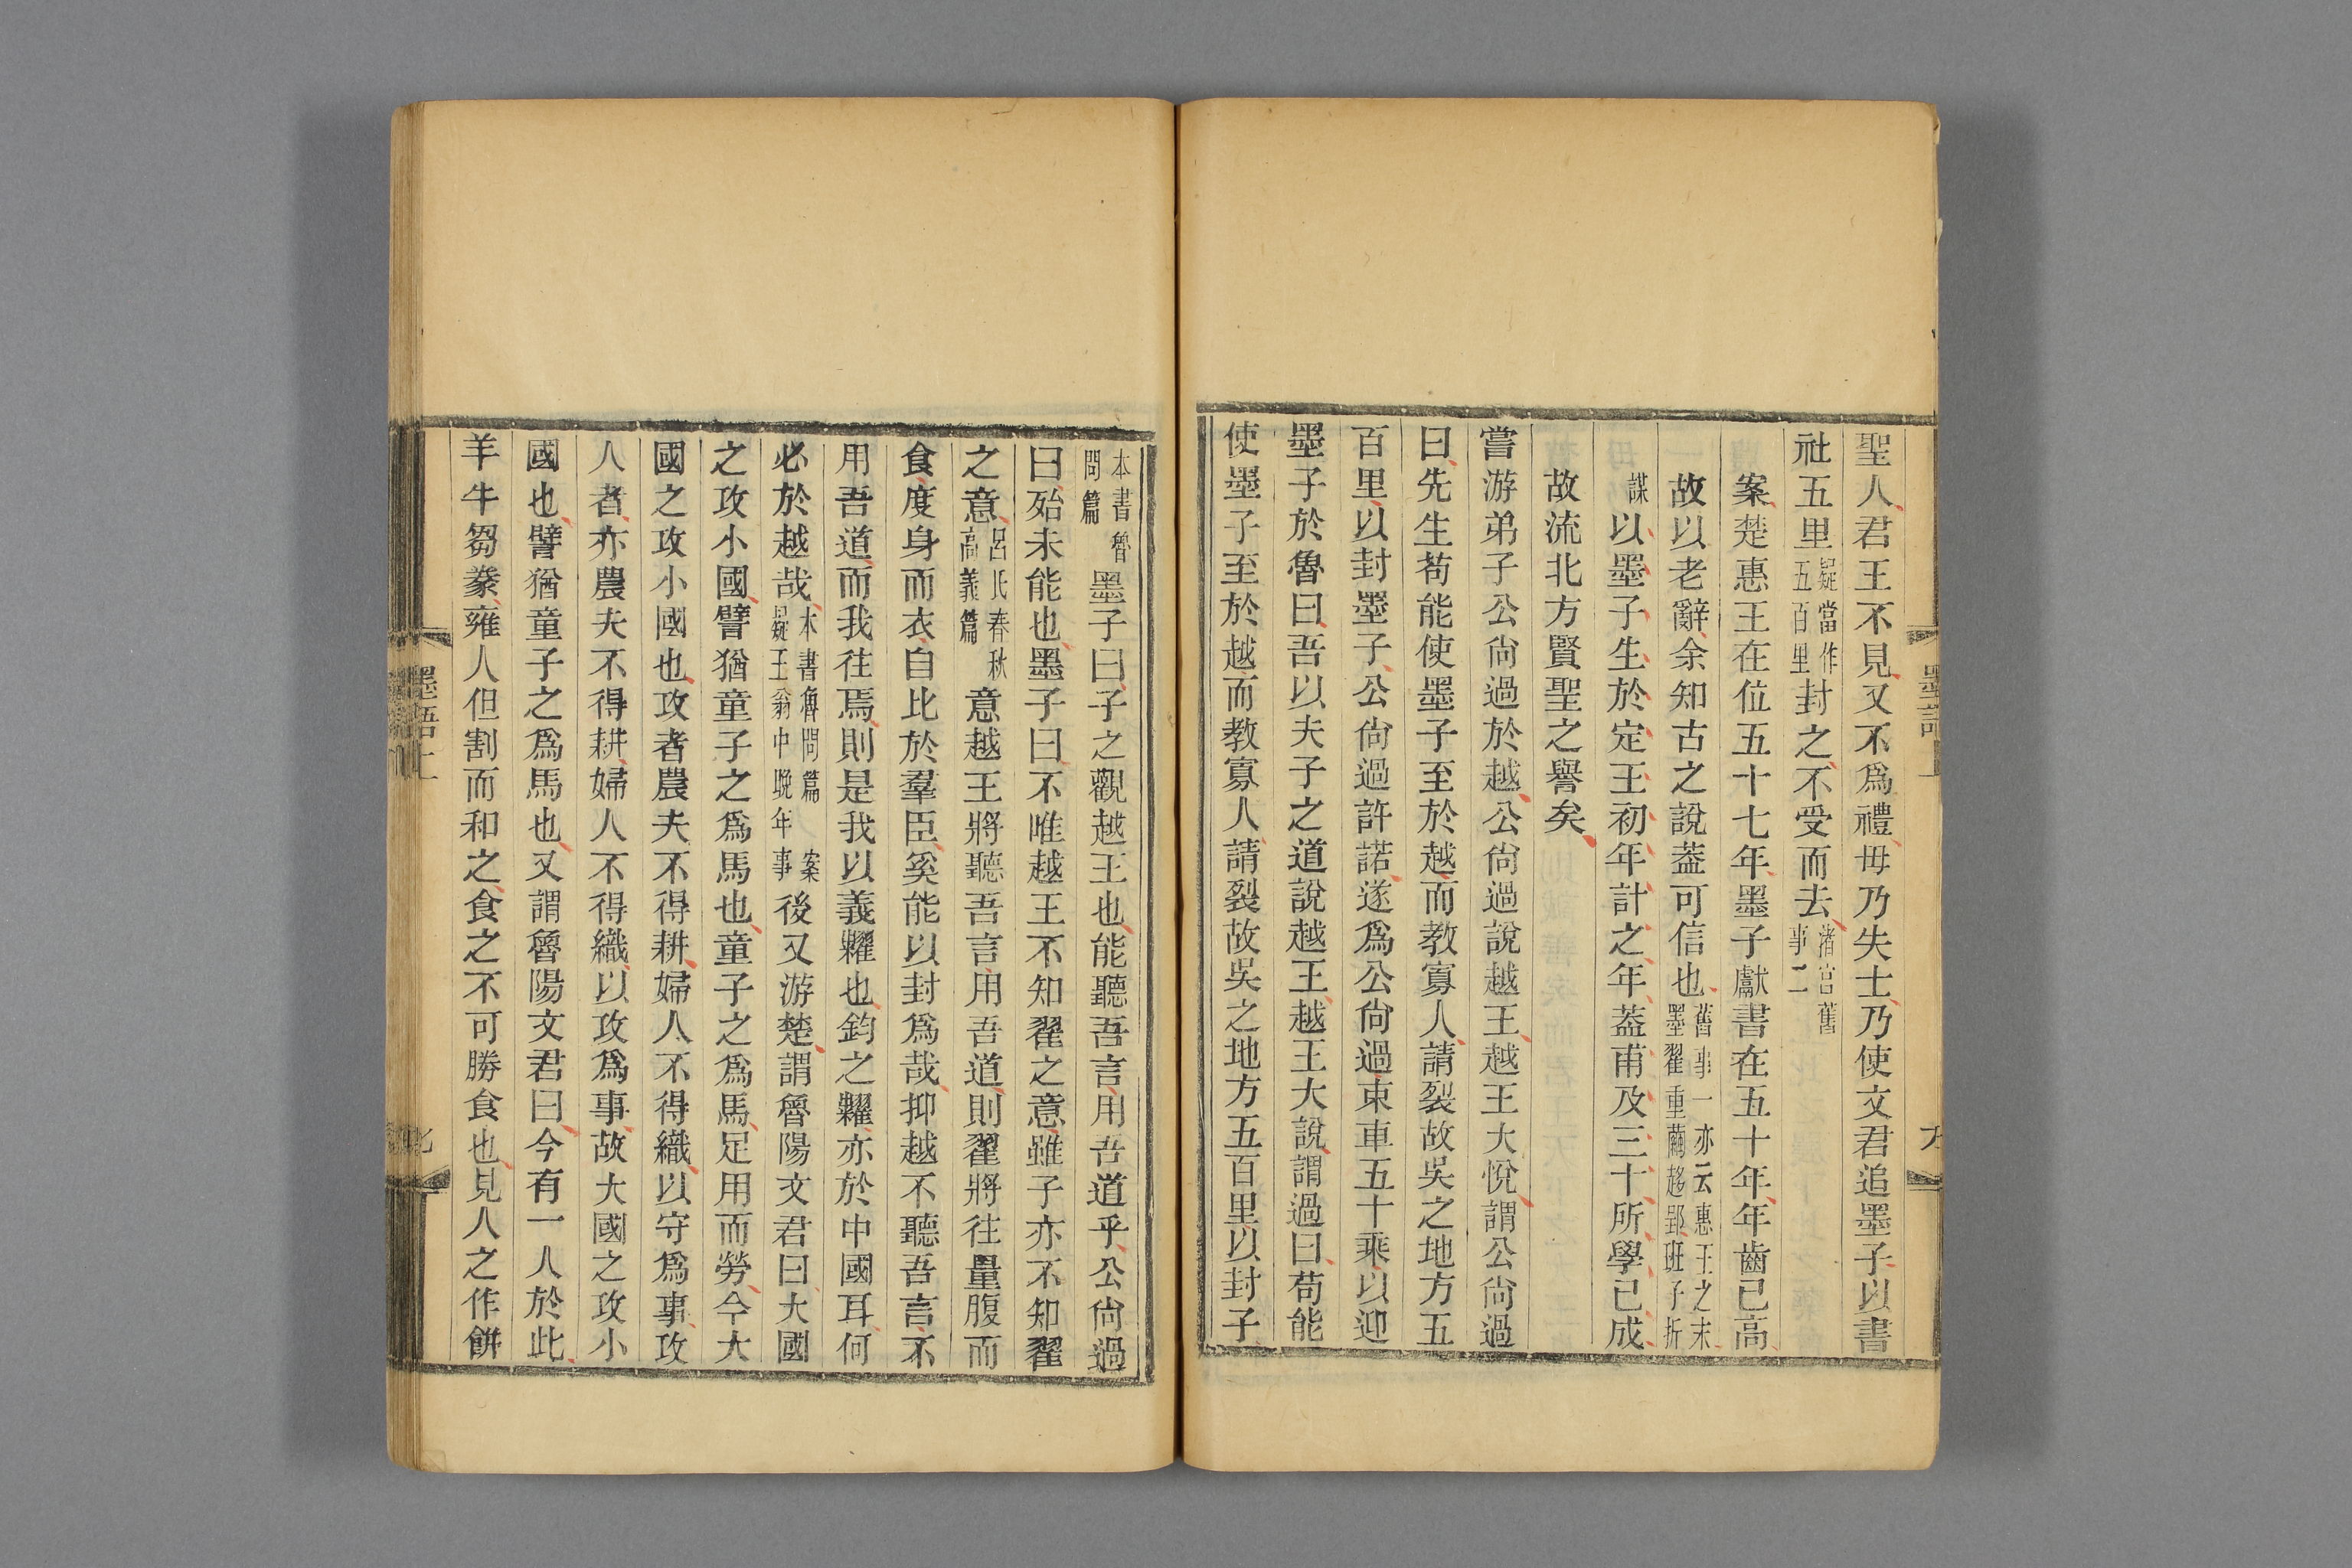 聖人君王不見又不爲禮毋乃失士乃使文君追墨子以書
社五里疑當作五百里封之不受而去渚宮舊事二
案楚惠王在位五十七年墨子獻書在五十年年齒已高
故以老辭余知古之說葢可信也舊事一亦云惠王之末墨翟重繭趍郢班子折
謀以墨子生於定王初年計之年葢甫及三十所學已成
故流北方賢聖之譽矣
嘗游弟子公尙過於越公尙過說越王越王大悅謂公尙過
曰先生苟能使墨子至於越而教寡人請裂故吳之地方五
百里以封墨子公尙過許諾遂爲公尙過束車五十乘以迎
墨子於魯曰吾以夫子之道說越王越王大說謂過曰苟能
使墨子至於越而教寡人請裂故吳之地方五百里以封子
本書魯問篇墨子曰子之觀越王也能聽吾言用吾道乎公尙過
曰殆未能也墨子曰不唯越王不知翟之意雖子亦不知翟
之意呂氏春秋高義篇意越王將聽吾言用吾道則翟將往量腹而
食度身而衣自比於羣臣奚能以封爲哉抑越不聽吾言不
用吾道而我往焉則是我以義糶也鈞之糶亦於中國耳何
必於越哉本書魯問篇案疑王翁中晚年事後又游楚謂魯陽文君曰大國
之攻小國譬猶童子之爲馬也童子之爲馬足用而勞今大
國之攻小國也攻者農夫不得耕婦人不得織以守爲事攻
人者亦農夫不得耕婦人不得織以攻爲事故大國之攻小
國也譬猶童子之爲馬也又謂魯陽文君曰今有一人於此
羊牛芻豢雍人但割而和之食之不可勝食也見人之作餅
墨語上